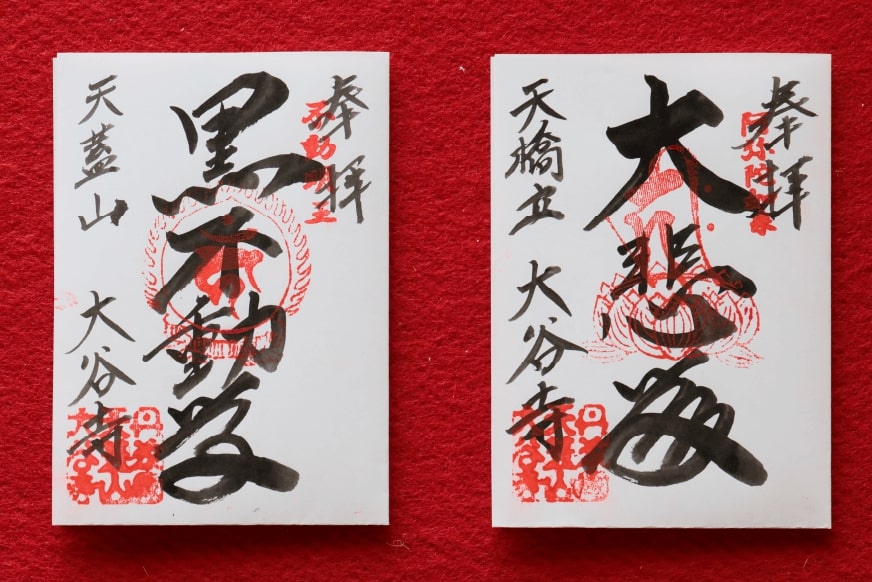 奉拝
不動明王
黒不動尊
天蓋山 大谷寺
奉拝
阿弥陀如来
大悲殿
天橋立 大谷寺